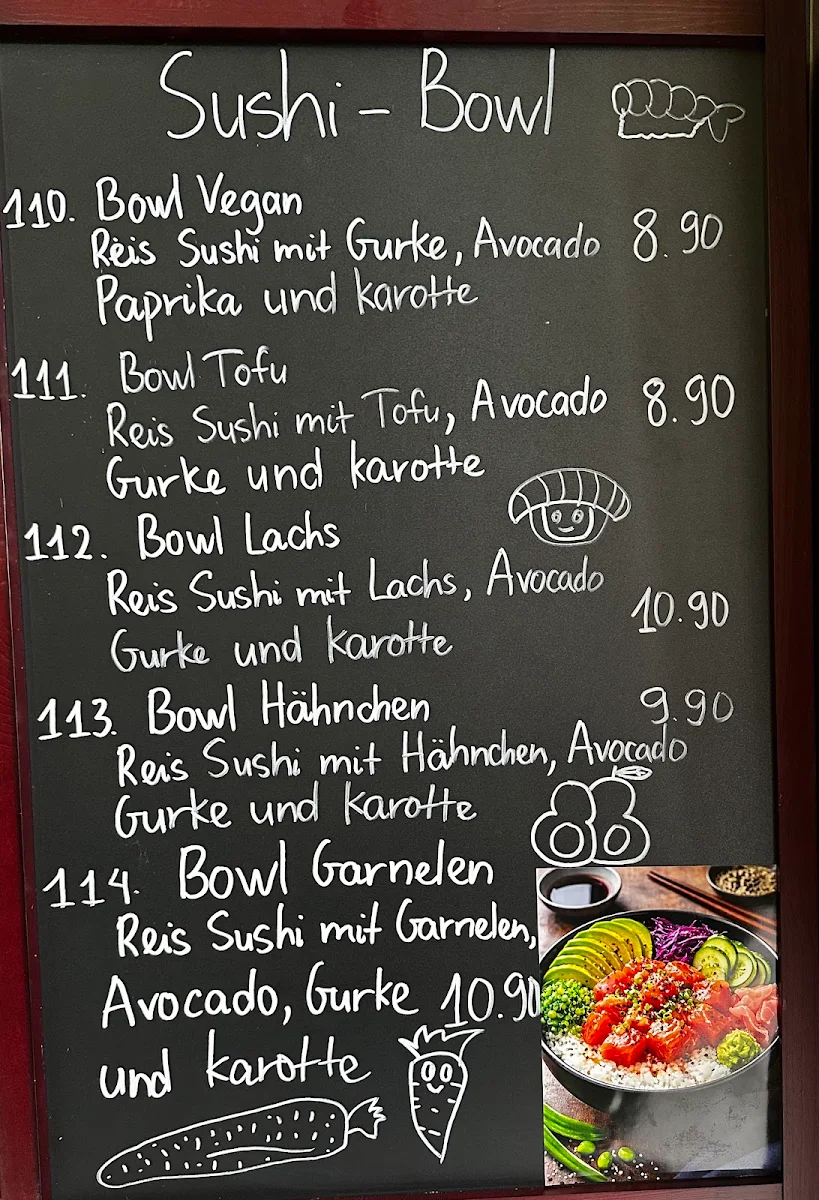 Sushi - Bowl
110. Bowl Vegan
Reis Sushi mit Gurke, Avocado 8.90
Paprika und karotte
111. Bowl Tofu
Reis Sushi mit Tofu, Avocado 8.90
Gurke und karotte
112. Bowl Lachs
Reis Sushi mit Lachs, Avocado
10.90
Gurke und karotte
113. Bowl Hähnchen 9.90
Reis Sushi mit Hähnchen, Avocado
Gurke und karotte
114. Bowl Garnelen
Reis Sushi mit Garnelen,
Avocado, Gurke 10.90
und karotte